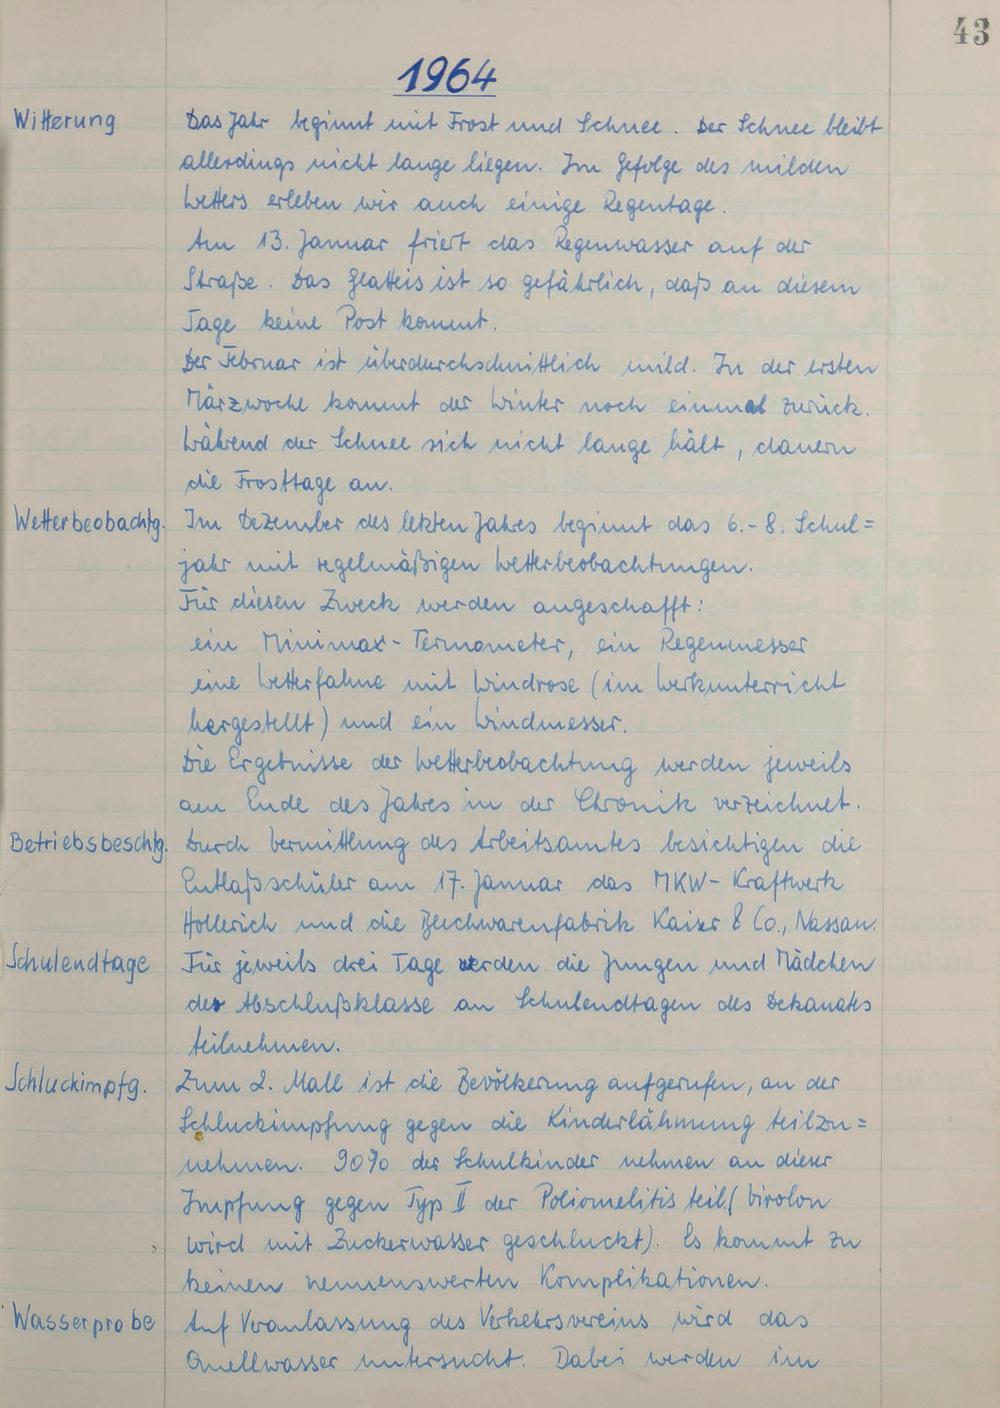 43
1964
Witterung Das Jahr beginnt mit Frost und Schnee. Der Schnee bleibt
allerdings nicht lange liegen. Im Gefolge des milden
Wetters erleben wir auch einige Regentage.
Am 13. Januar friert das Regenwasser auf der
Straße. Das Glatteis ist so gefährlich, daß an diesem
Tage keine Post kommt.
Der Februar ist überdurchschnittlich mild. In der ersten
Märzwoche kommt der Winter noch einmal zurück.
Während der Schnee sich nicht lange hält, dauern
die Frosttage an.
Wetterbeobachtg. Im Dezember des letzten Jahres beginnt das 6.-8. Schul=
jahr mit regelmäßigen Wetterbeobachtungen.
Für diesen Zweck werden angeschafft:
ein Minimax-Termometer, ein Regenmesser
eine Wetterfahne mit Windrose (im Werkunterricht
hergestellt) und ein Windmesser.
Die Ergebnisse der Wetterbeobachtung werden jeweils
am Ende des Jahres in der Chronik verzeichnet.
Betriebsbeschtg. Durch Vermittlung des Arbeitsamtes besichtigen die
Entlaßschüler am 17. Januar das MKW-Kraftwerk
Hollerich und die Blechwarenfabrik Kaiser & Co., Nassau.
Schulendtage Für jeweils drei Tage werden die Jungen und Mädchen
der Abschlußklasse an Schulendtagen des Dekanats
teilnehmen.
Schluckimpfg. Zum 2. Mall ist die Bevölkerung aufgerufen, an der
Schluckimpfung gegen die Kinderlähmung teilzu=
nehmen. 90% der Schulkinder nehmen an dieser
Impfung gegen Typ II der Poliomelitis teil. (Virolon
wird mit Zuckerwasser geschluckt). Es kommt zu
keinen nennenswerten Komplikationen.
Wasserprobe Auf Veranlassung des Verkehrsvereins wird das
Quellwasser untersucht. Dabei werden im